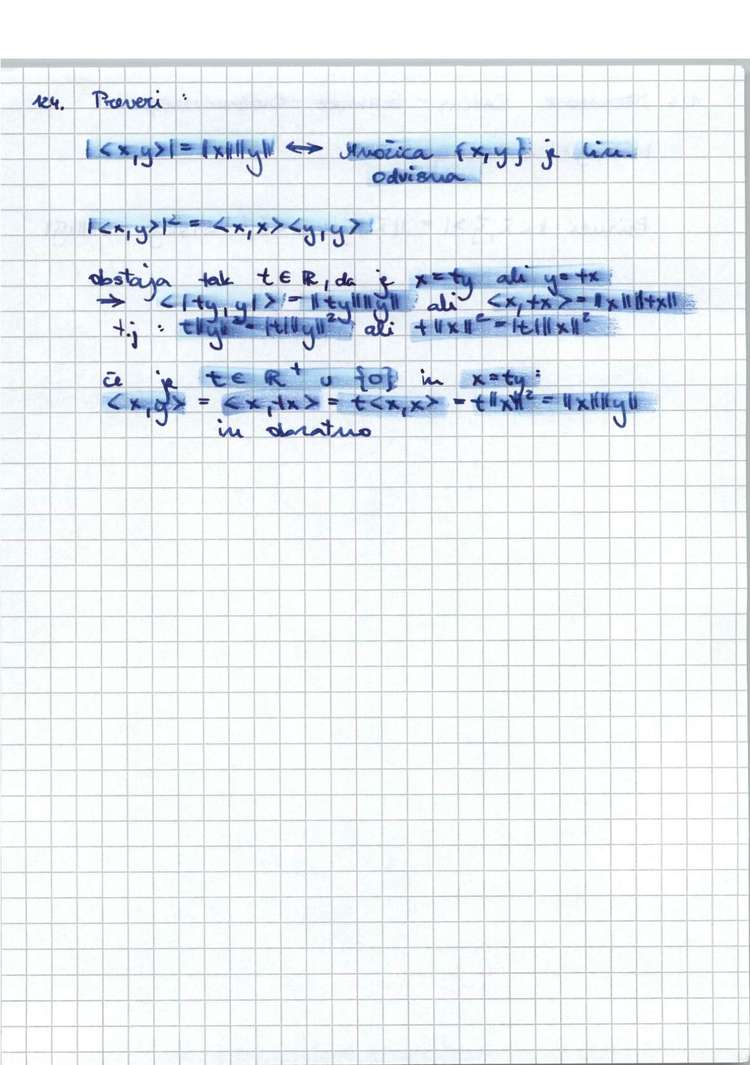 124. Preveri :
|<x,y>| = ‖x‖‖y‖ ↔ Množica {x,y} je lin.
odvisna
|<x,y>|² = <x,x><y,y>
obstaja tak t ∈ ℝ, da je x=ty ali y=tx
→ <|ty,y|> = ‖ty‖‖y‖ ali <x,tx> = ‖x‖‖tx‖
t.j : t‖y‖² = |t|‖y‖² ali t‖x‖² = |t|‖x‖²
če je t ∈ ℝ⁺ ∪ {0} in x=ty :
<x,y> = <x,tx> = t<x,x> = t‖x‖² = ‖x‖‖y‖
in obratno